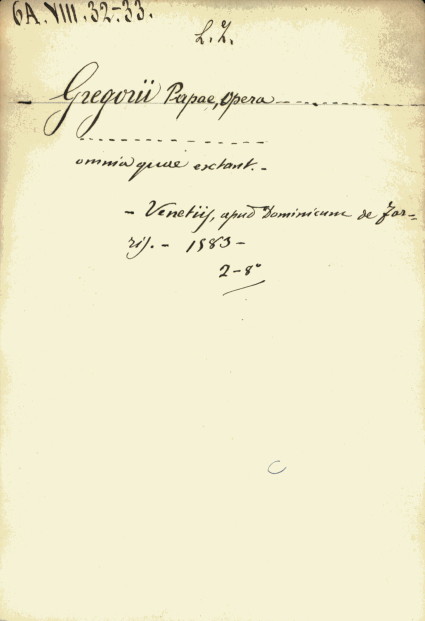 6A.VIII.32-33.
L. Z.
Gregorii Papae, Opera
omnia quae extant. -
- Venetiis, apud Dominicum de Far-
ris. - 1583 -
2 - 8°